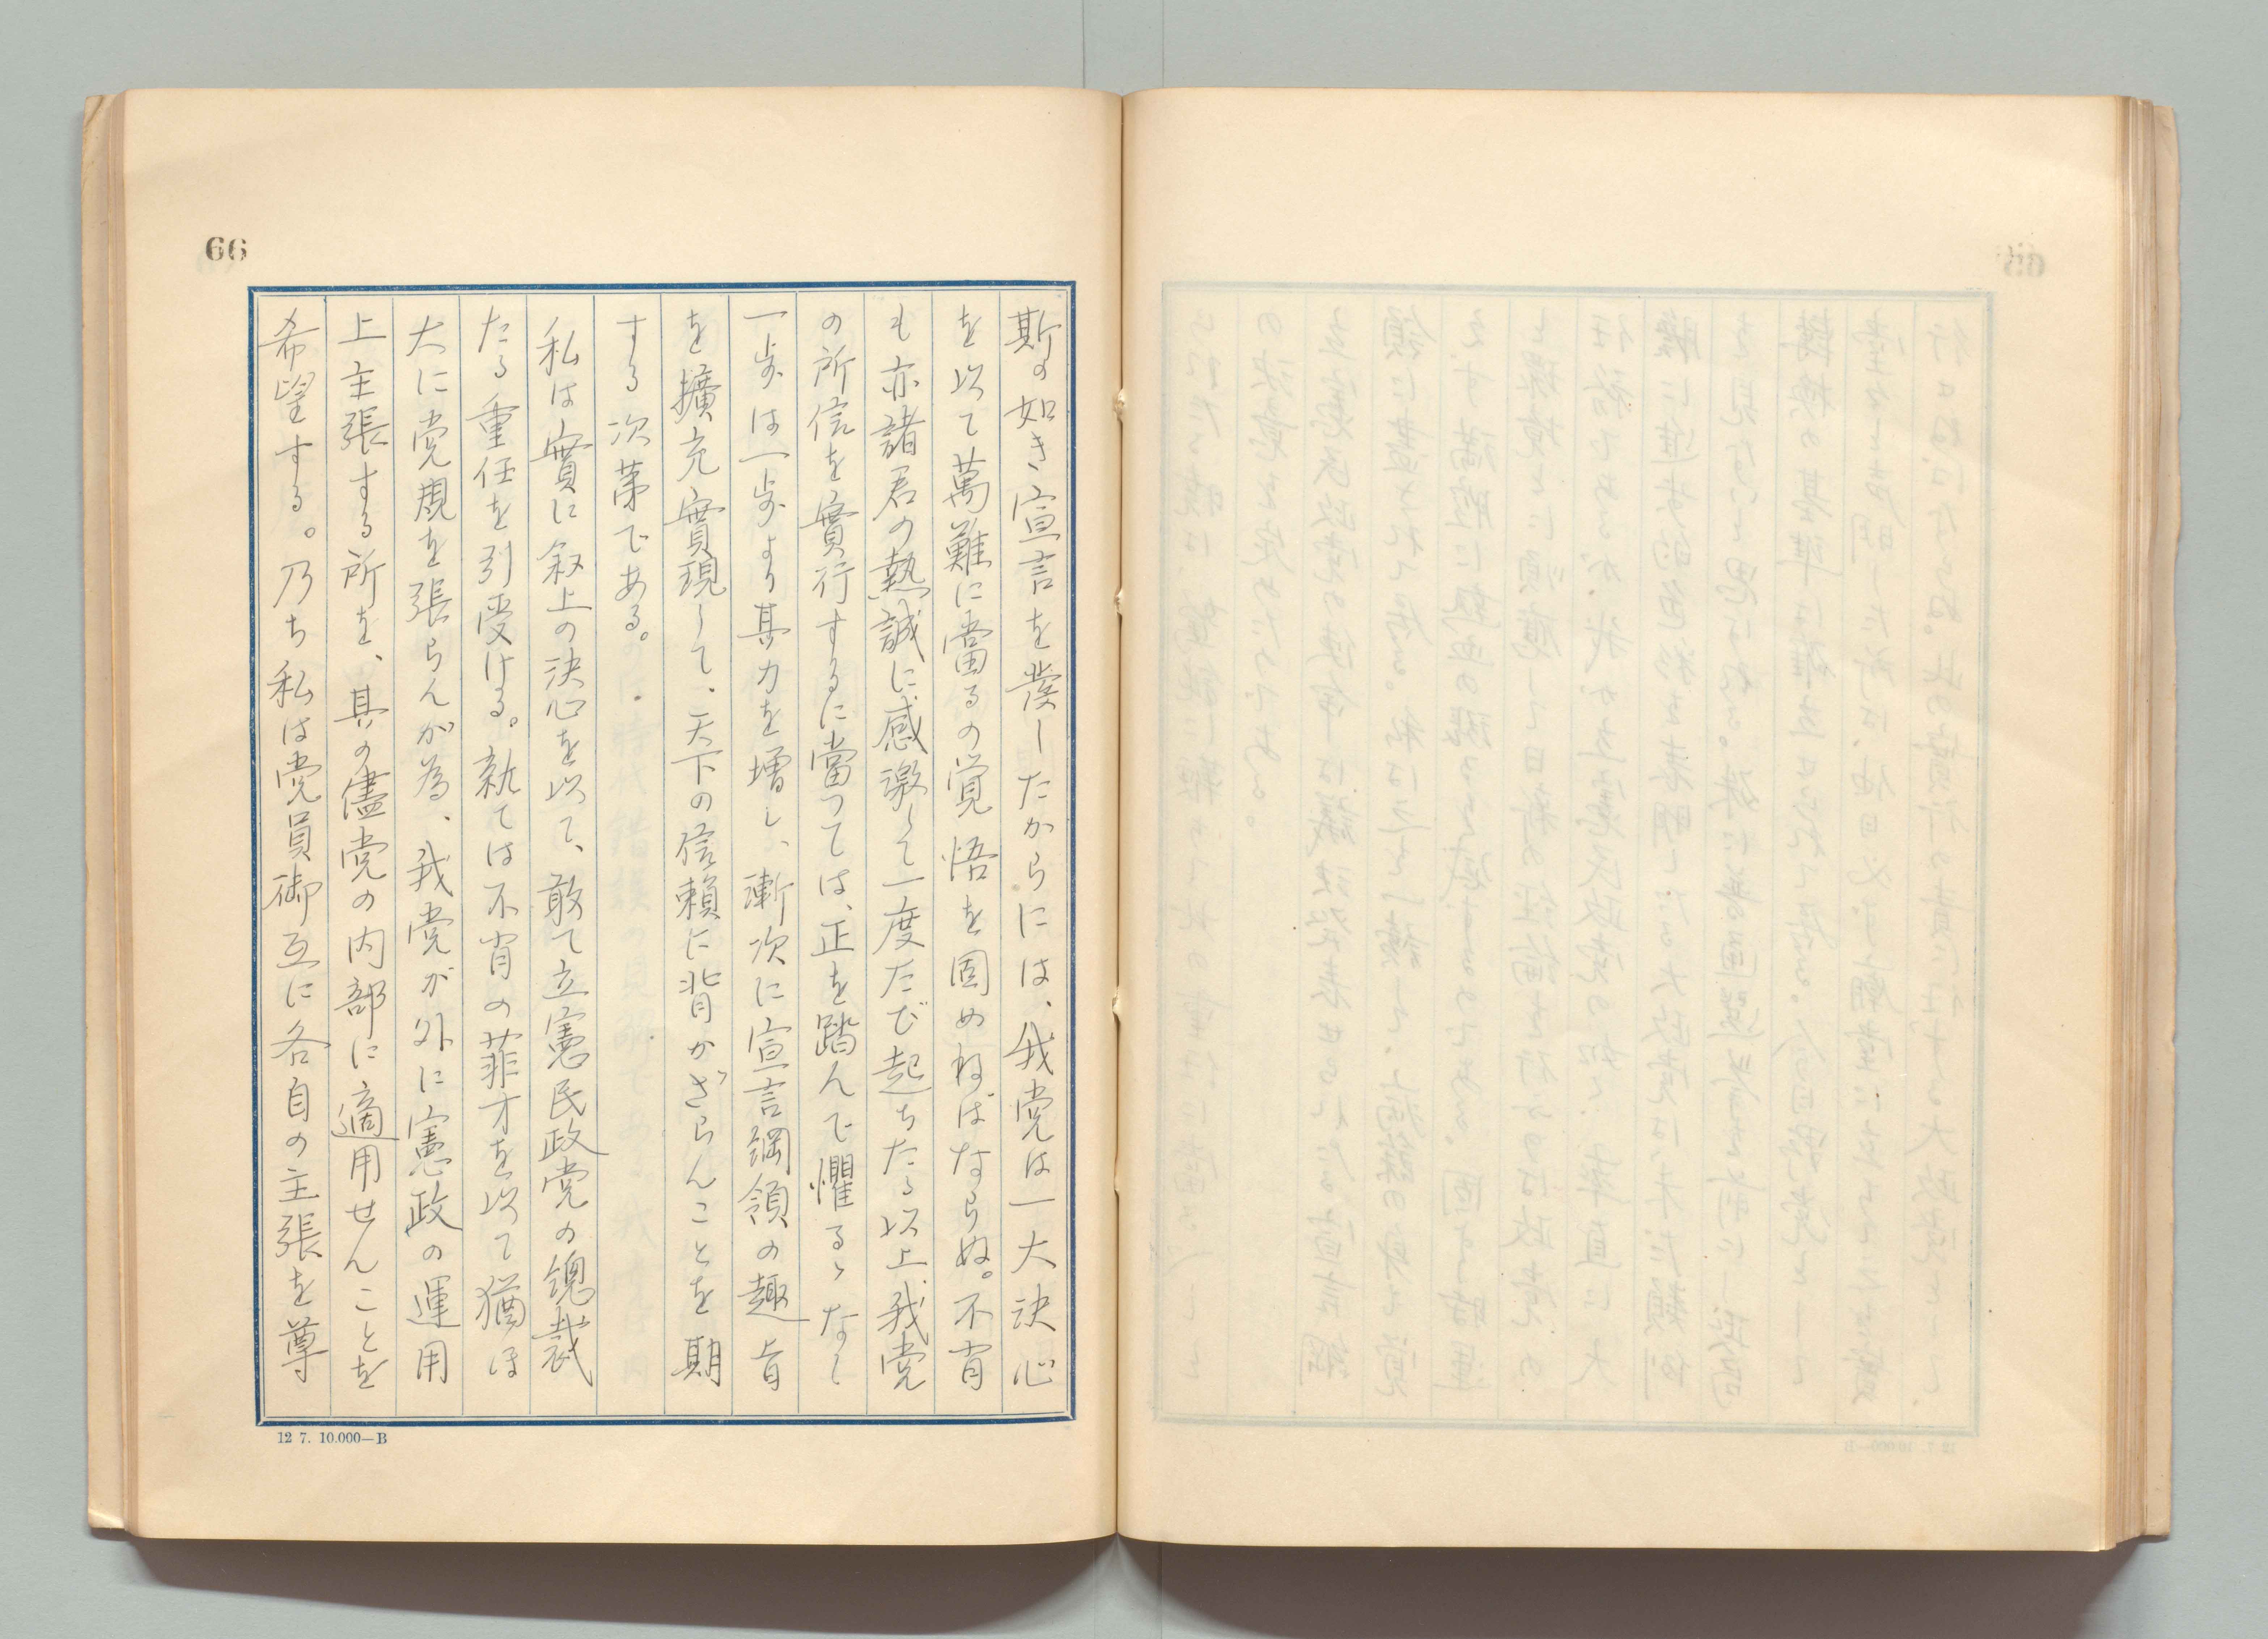 66
斯の如き宣言を發したからには、我党は一大決心
を以て萬難に當るの覚悟を固めねばならぬ。不肖
も亦諸君の熱誠に感激して一度たび起ちたる以上我党
の所信を實行するに當つては、正を踏んで懼るゝなく
一歩は一歩より其力を増し、漸次に宣言綱領の趣旨
を擴充實現して、天下の信頼に背かざらんことを期
する次第である。
私は實に叙上の決心を以て、敢て立憲民政党の總裁
たる重任を引受ける。就ては不肖の菲才を以て猶ほ
大に党規を張らんが為、我党が外に憲政の運用
上主張する所を、其の儘党の内部に適用せんことを
希望する。乃ち私は党員御互に各自の主張を尊
12 7. 10.000—B